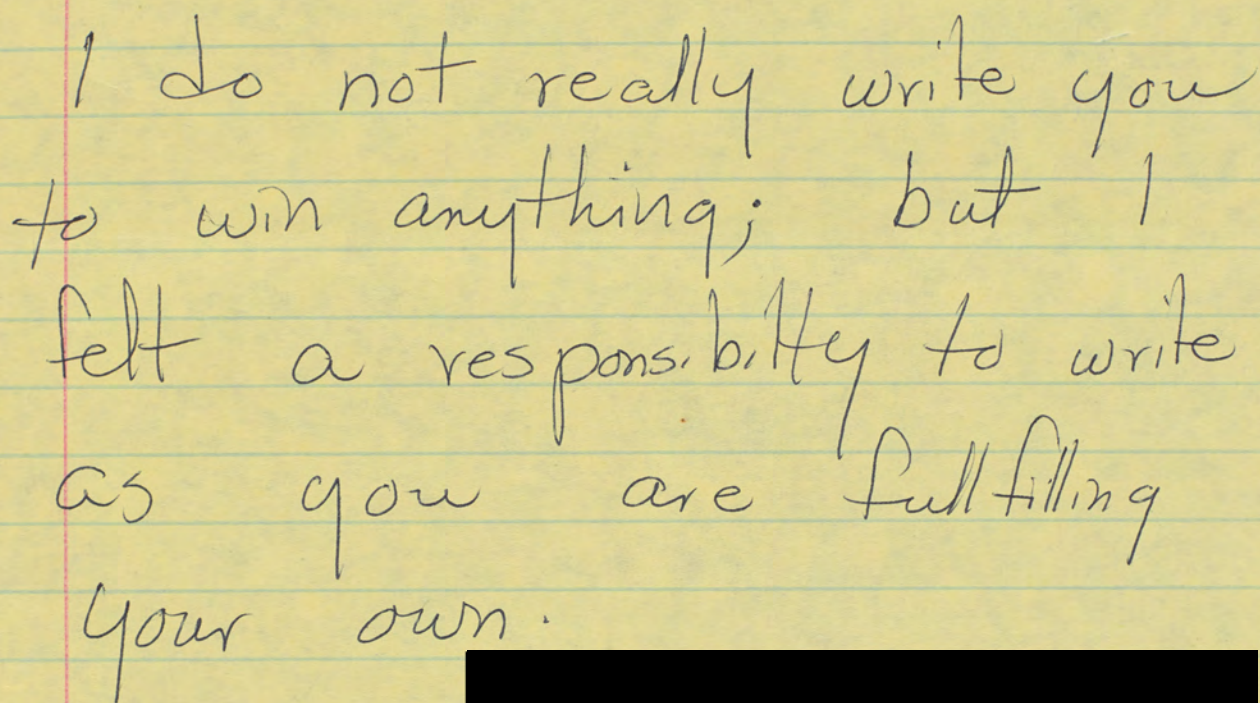 I do not really write you
to win anything; but I
felt a responsibilty to write
as you are fullfilling
your own.